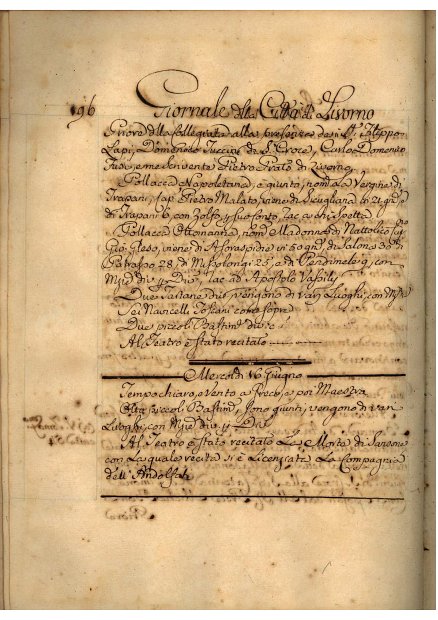 196 Giornale della Città di Livorno
Priore della Collegiata alla presenza de SS.i Filippo
Lapi, Domenico Tuccini da S. Croce, Carlo Domenico
e me scrivente Pietro Prato di Livorno
Pollacca Napoletana, è giunta, nom.a La Vergine di
Trapani, Cap. Pietro Malato, viene di Sicigliana in 21 g.ni e
di Trapani 6, con Zolfo, e Sugo forte, rac. a chi spetta
Pollacca Ottomanna, nom. Madonna di Nattolico, Cap.no
Gio: viene di in 50 g.ni di Salones 35 di
Patrasso 28, di Missolongi 25, e di 9, con
M.zie div.e 4 Div.i, rac. ad Apostolo Vassili
Due Tartane div.e vengono di varj Luoghi, con M.zie
Sei Navicelli Toscani come sopra
Due piccoli Bastim.ti div.i
Al Teatro è stato recitato
Mercordì 16 Giugno
Tempo chiaro, e Vento a Greco, e poi Maestro
Otto piccoli Bastim.ti sono giunti, vengono di varj
Luoghi, con M.zie div.e 4 Div.i
Al Teatro è stata recitato La Morte di Sansone
con La quale recita si è Licenziata La Compagnia
dell' Andolfati